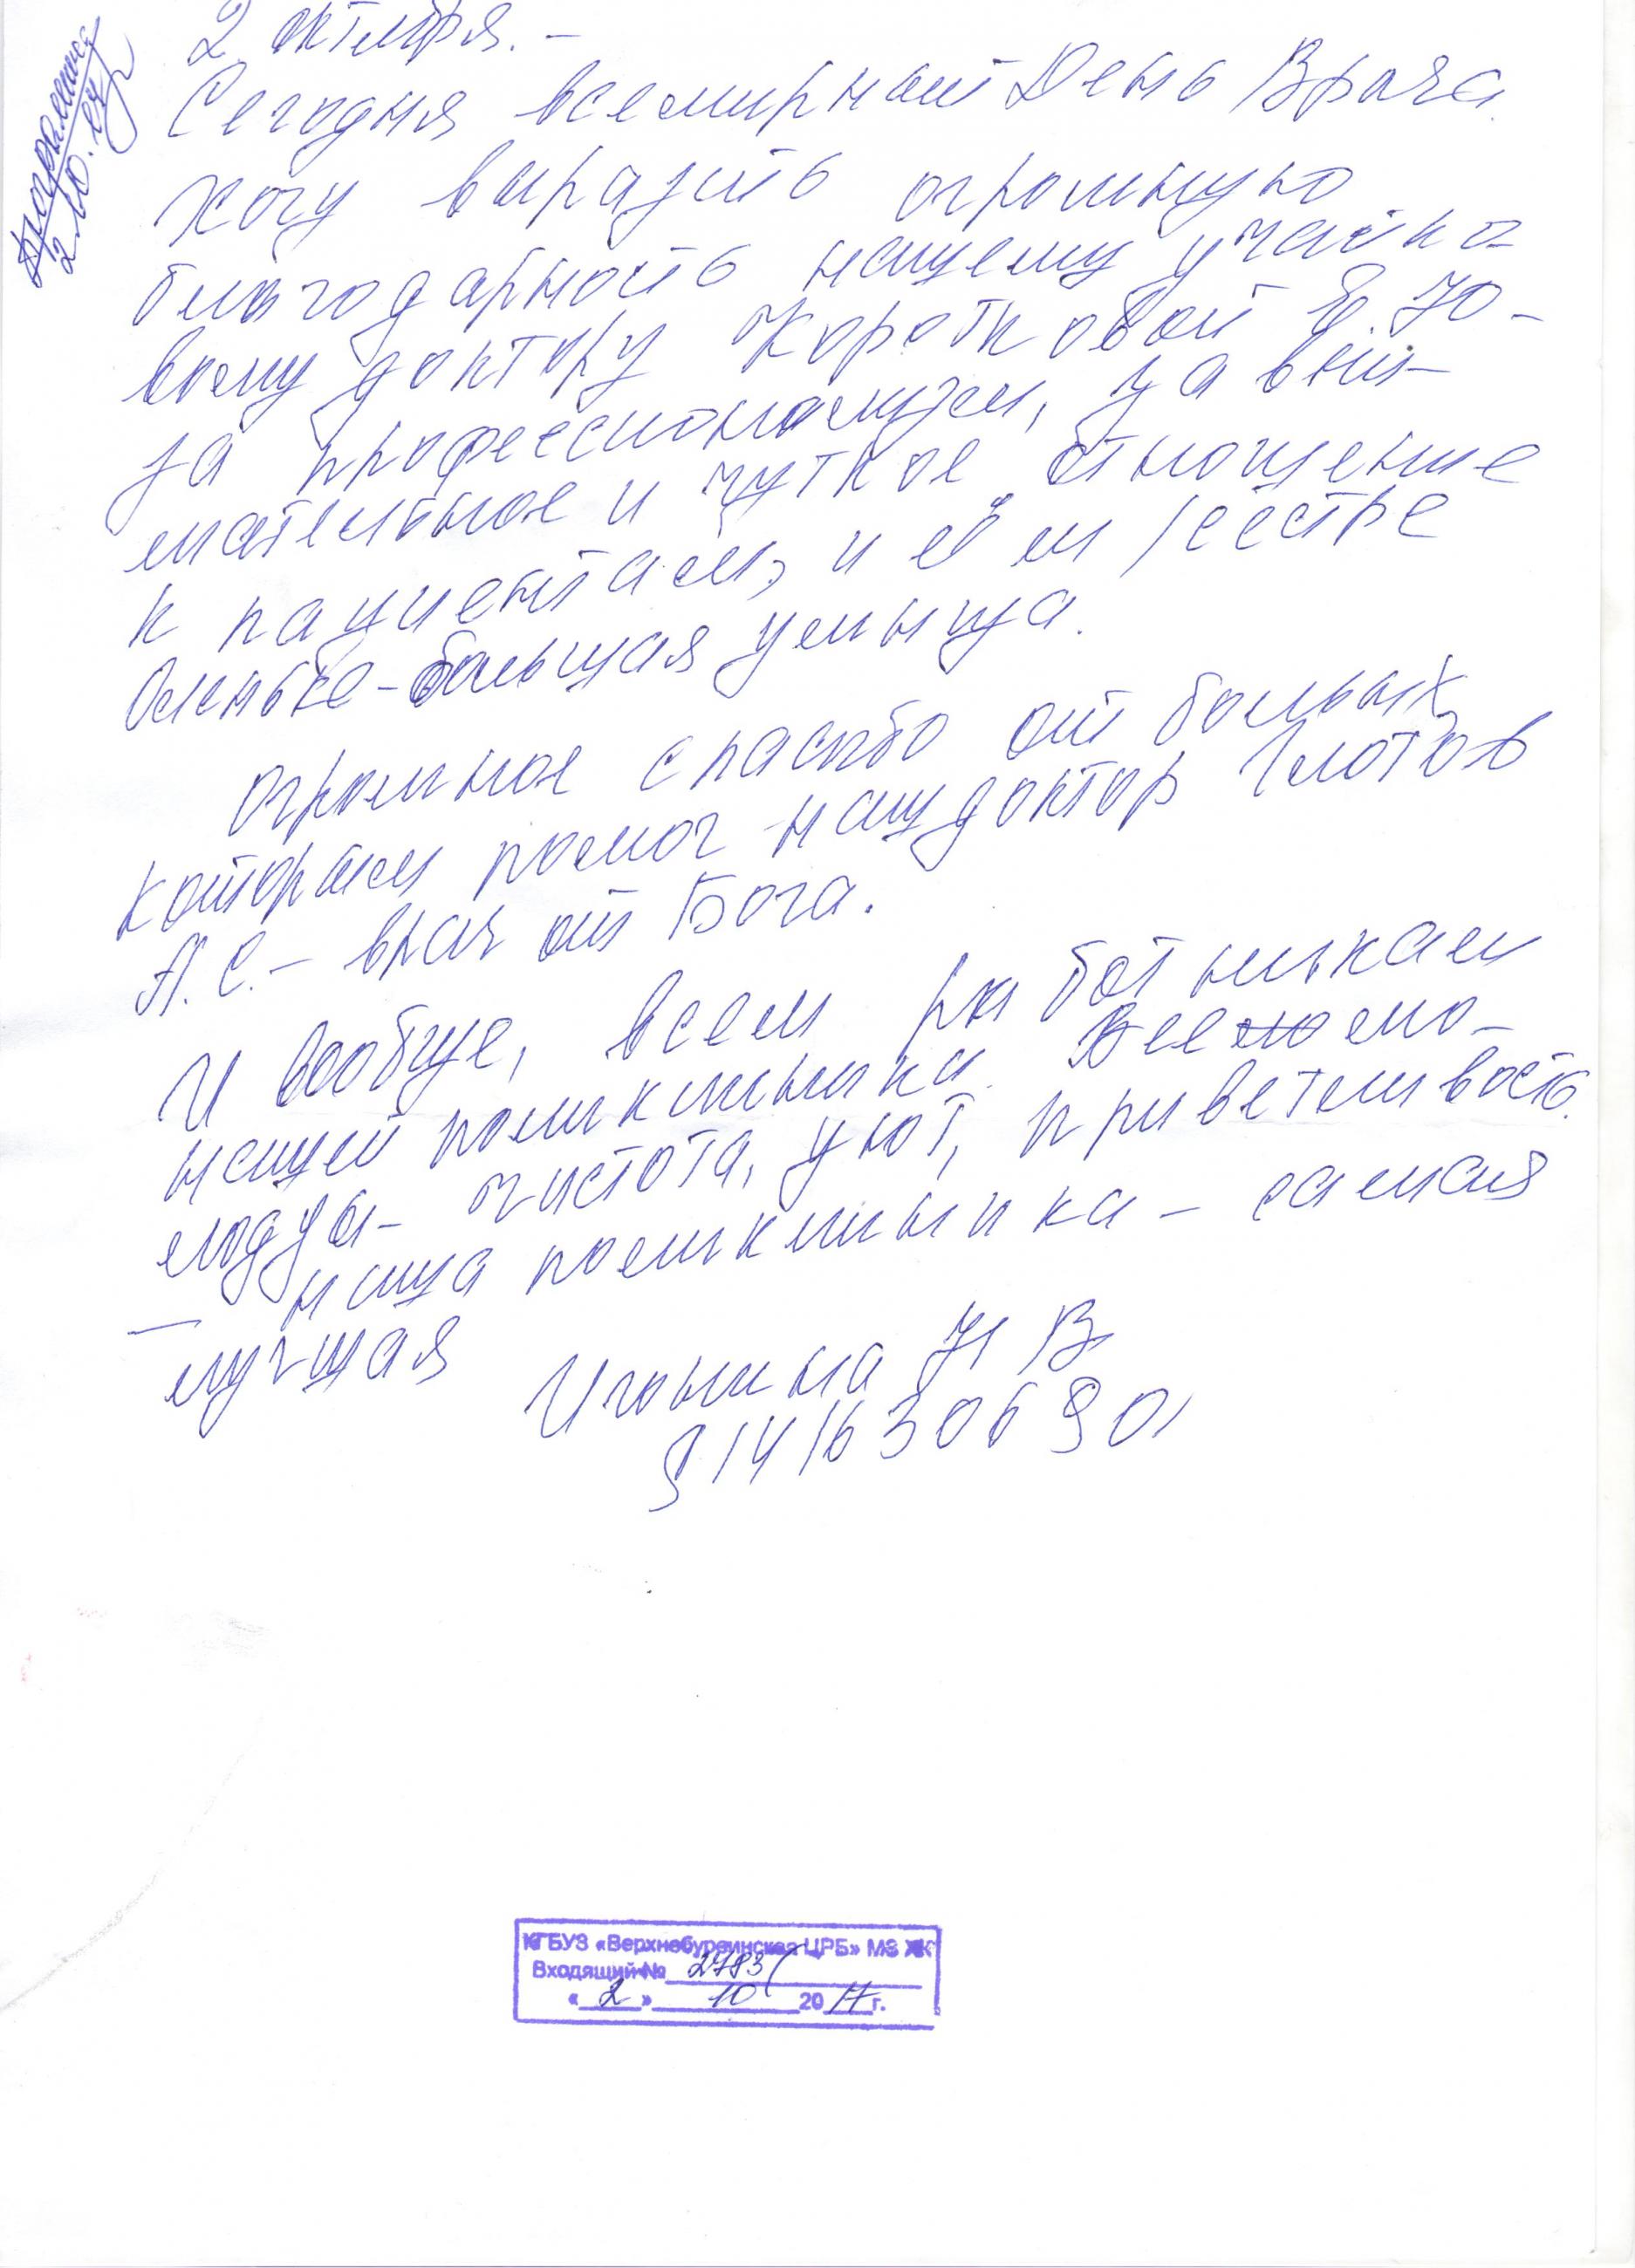 2 октября. -
Сегодня всемирный День Врача.
Хочу выразить огромную
благодарность нашему участко-
вому доктору Коротковой Е. Ю -
за профессионализм, за вни-
мательное и чуткое отношение
к пациентам, и её м/сестре
Оленьке - большая умница.
Огромное спасибо от больных
которым помог наш доктор Глотов
А. С. - врач от Бога.
И вообще, всем работникам
нашей поликлиники. Все мо-
лодцы - чистота, уют, приветливость.
- наша поликлиника - самая
лучшая
Н В
КГБУЗ «Верхнебуреинская ЦРБ» МЗ ХК
Входящий № 2783
« 2 » 10 20 17 г.